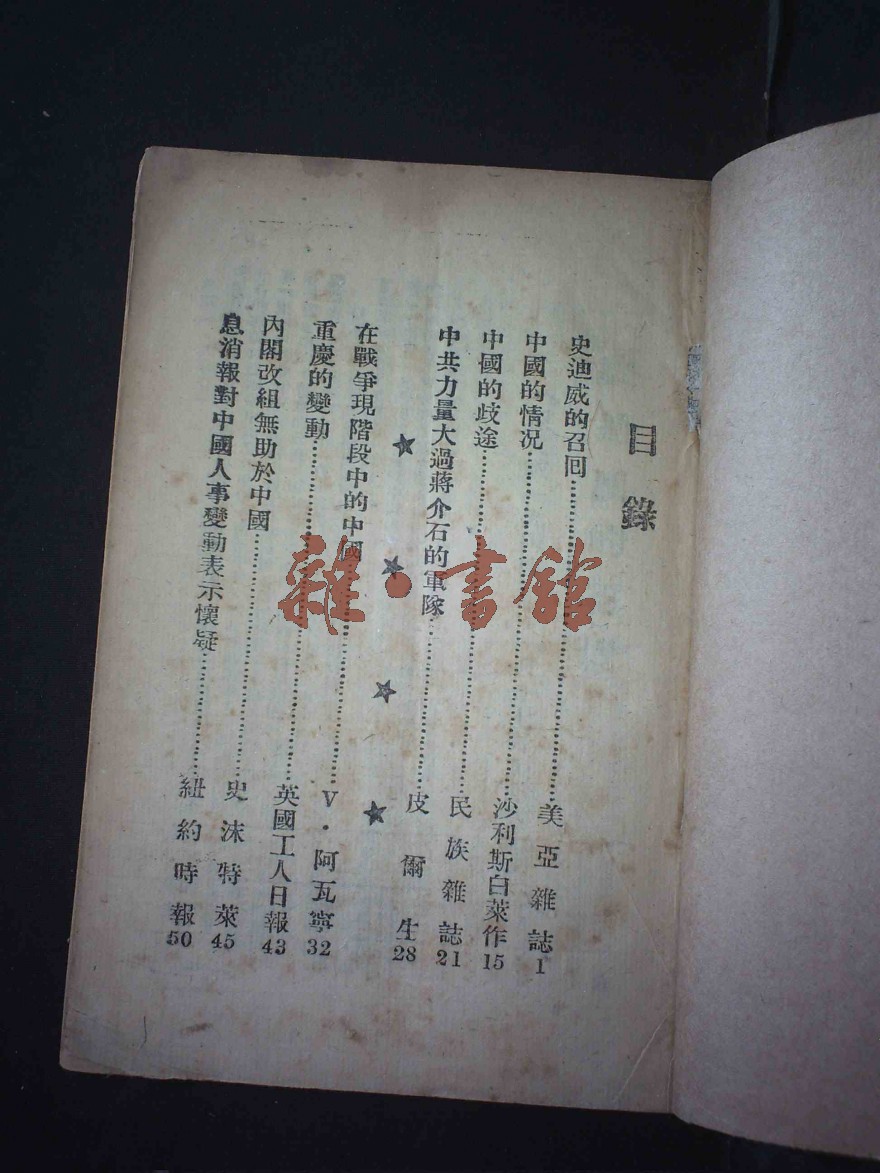 目錄
史迪威的召囘……美亞雜誌1
中國的情况……沙利斯白萊作15
中國的歧途……民族雜誌21
中共力量大過蔣介石的軍隊……皮爾生28
★★★★
在戰爭現階段中的中國……V·阿瓦寧32
重慶的變動……英國工人日報43
內閣改組無助於中國……史沫特萊45
息消報對中國人事變動表示懷疑……紐約時報50
雜·書館